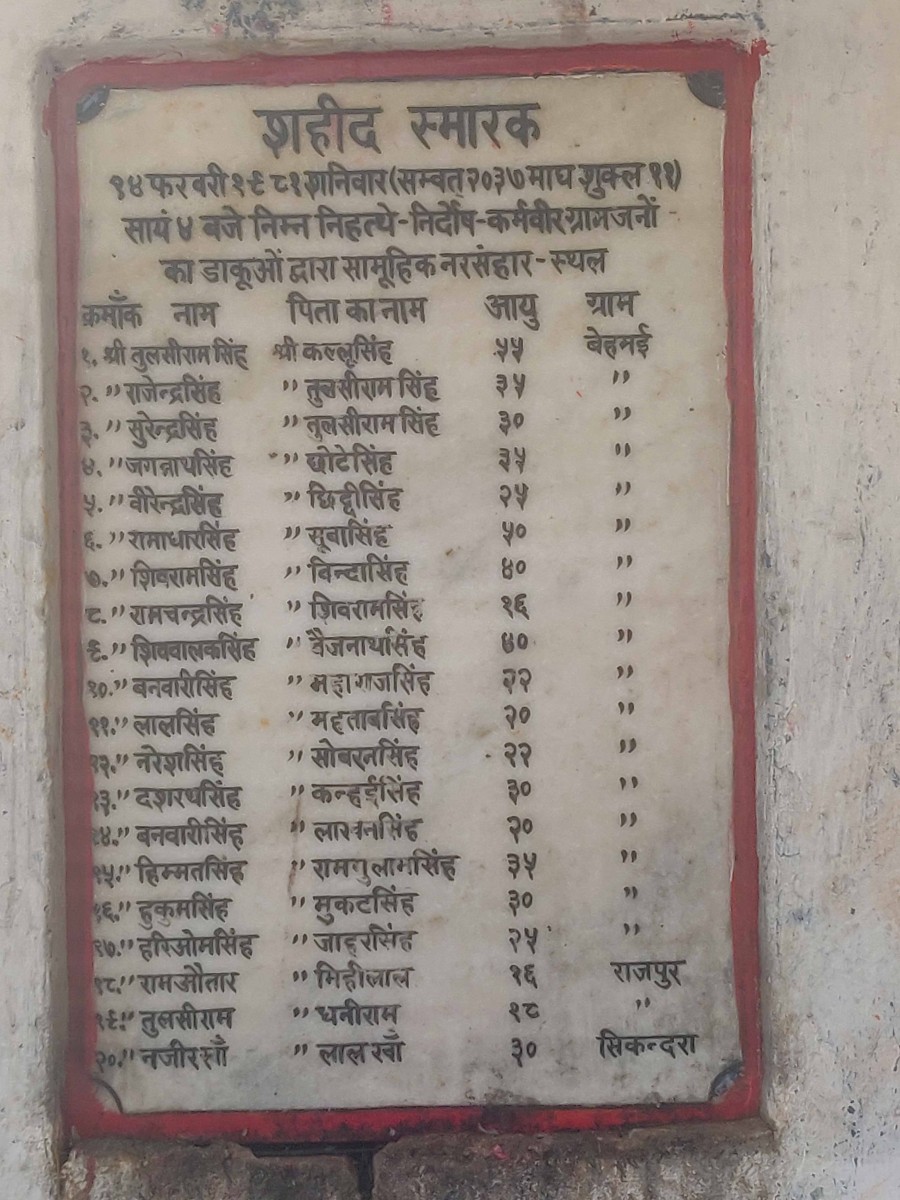 शहीद स्मारक
१४ फरवरी १९८१ शनिवार (सम्वत् २०३७ माघ शुक्ल ११)
सायं ४ बजे निम्न निहत्थे-निर्दोष-कर्मवीर ग्रामजनों
का डाकूओं द्वारा सामूहिक नरसंहार-स्थल
क्रमाँक नाम पिता का नाम आयु ग्राम
१. श्री तुलसीराम सिंह श्री कल्लूसिंह ५५ बेहमई
२. " राजेन्द्रसिंह " तुलसीराम सिंह ३५ "
३. " सुरेन्द्रसिंह " तुलसीराम सिंह ३० "
४. " जगन्नाथसिंह " छोटेसिंह ३५ "
५. " वीरेन्द्रसिंह " छिद्दीसिंह २५ "
६. " रामाधारसिंह " सूबासिंह ५० "
७. " शिवरामसिंह " विन्दासिंह ४० "
८. " रामचन्द्रसिंह " शिवरामसिंह १६ "
९. " शिववालकसिंह " वैजनाथसिंह ४० "
१०. " बनवारीसिंह " महाराजसिंह २२ "
११. " लालसिंह " महताबसिंह २० "
१२. " नरेशसिंह " सोबरनसिंह २२ "
१३. " दशरथसिंह " कन्हईसिंह ३० "
१४. " बनवारीसिंह " लाखनसिंह २० "
१५. " हिम्मतसिंह " रामगुलामसिंह ३५ "
१६. " हुकुमसिंह " मुकटसिंह ३० "
१७. " हरिओमसिंह " जाहरसिंह २५ "
१८. " रामऔतार " मिहीलाल १६ राजपुर
१९. " तुलसीराम " धनीराम १८ "
२०. " नजीरखाँ " लाल खाँ ३० सिकन्दरा